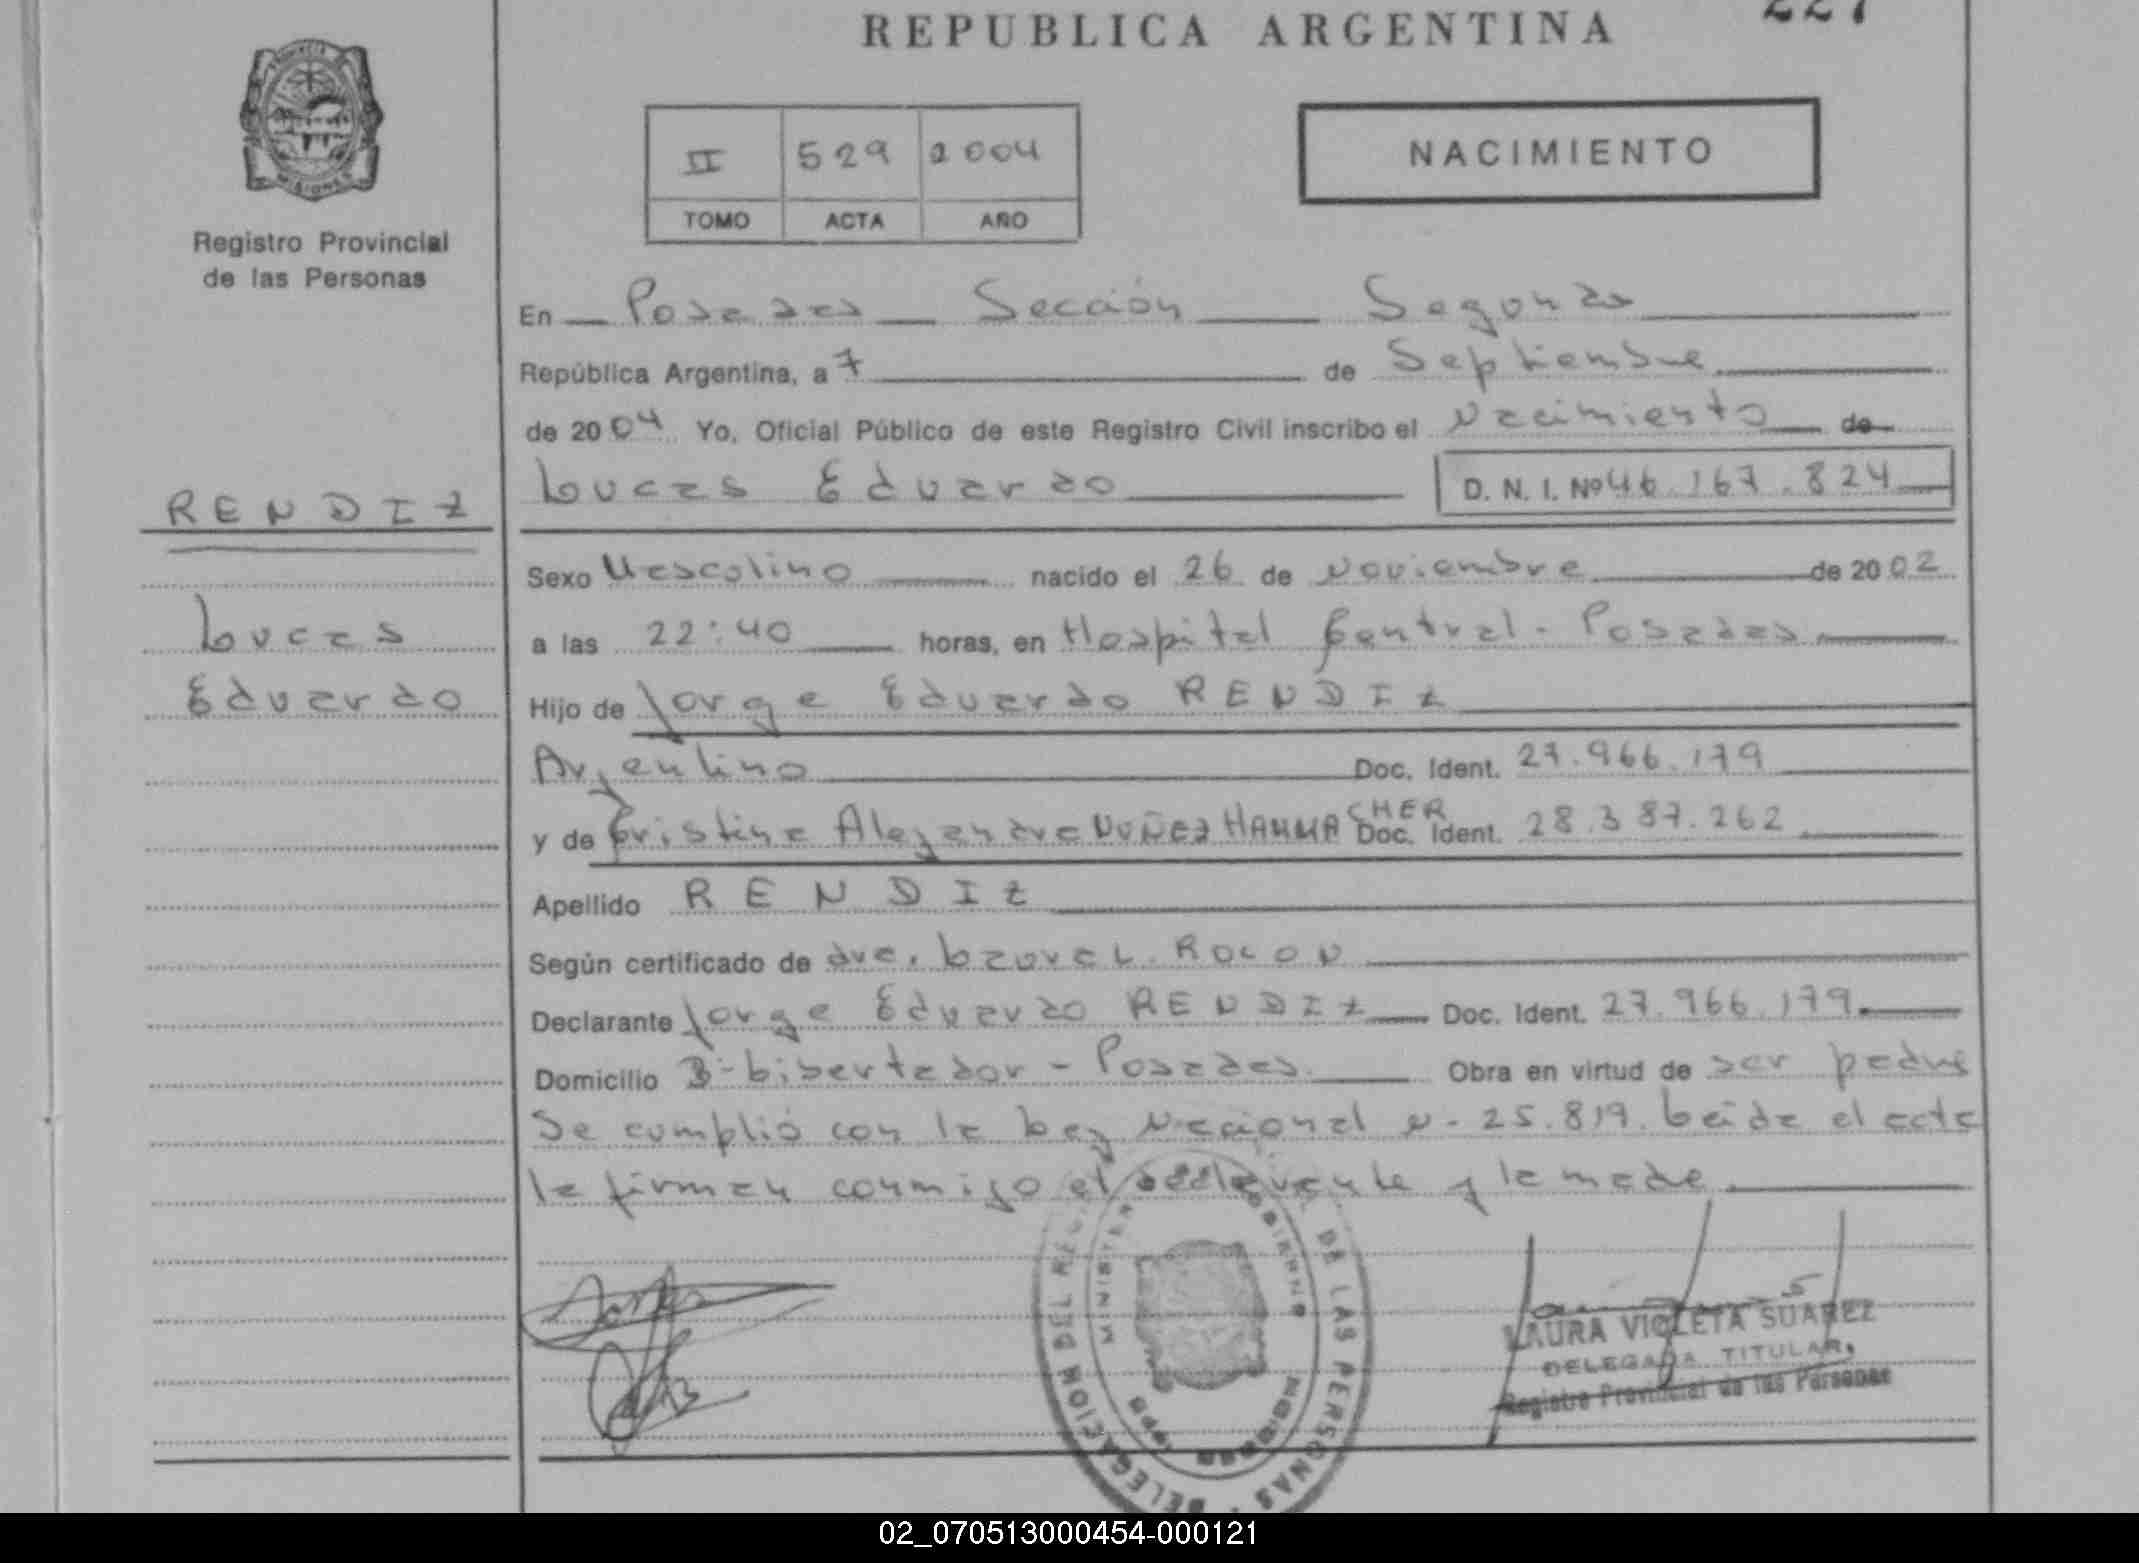 REPUBLICA ARGENTINA
227
II 529 2004
TOMO ACTA AÑO
NACIMIENTO
Registro Provincial
de las Personas
En Posadas Sección Segunda
República Argentina, a 7 de Septiembre
de 2004 Yo, Oficial Público de este Registro Civil inscribo el Nacimiento de
Lucas Eduardo D. N. I. Nº 46.167.824
RENDIZ
Sexo Masculino nacido el 26 de Noviembre de 2002
Lucas
a las 22:40 horas, en Hospital Central - Posadas
Eduardo
Hijo de Jorge Eduardo RENDIZ
Argentino Doc. Ident. 27.966.179
y de Cristina Alejandra NUÑEZ HAMMASCHER Doc. Ident. 28.387.262
Apellido RENDIZ
Según certificado de dra. Laura L. ROLON
Declarante Jorge Eduardo RENDIZ Doc. Ident. 27.966.179.
Domicilio Bº Libertador - Posadas. Obra en virtud de ser padre
Se cumplió con la Ley Nacional Nº 25.819. Leída el acta
la firman conmigo el declarante y la madre.
MINISTERIO GOBIERNO
DELEGACION DEL REG. DE LAS PERSONAS
LAURA VIOLETA SUAREZ
DELEGADA TITULAR
Registro Provincial de las Personas
02_070513000454-000121